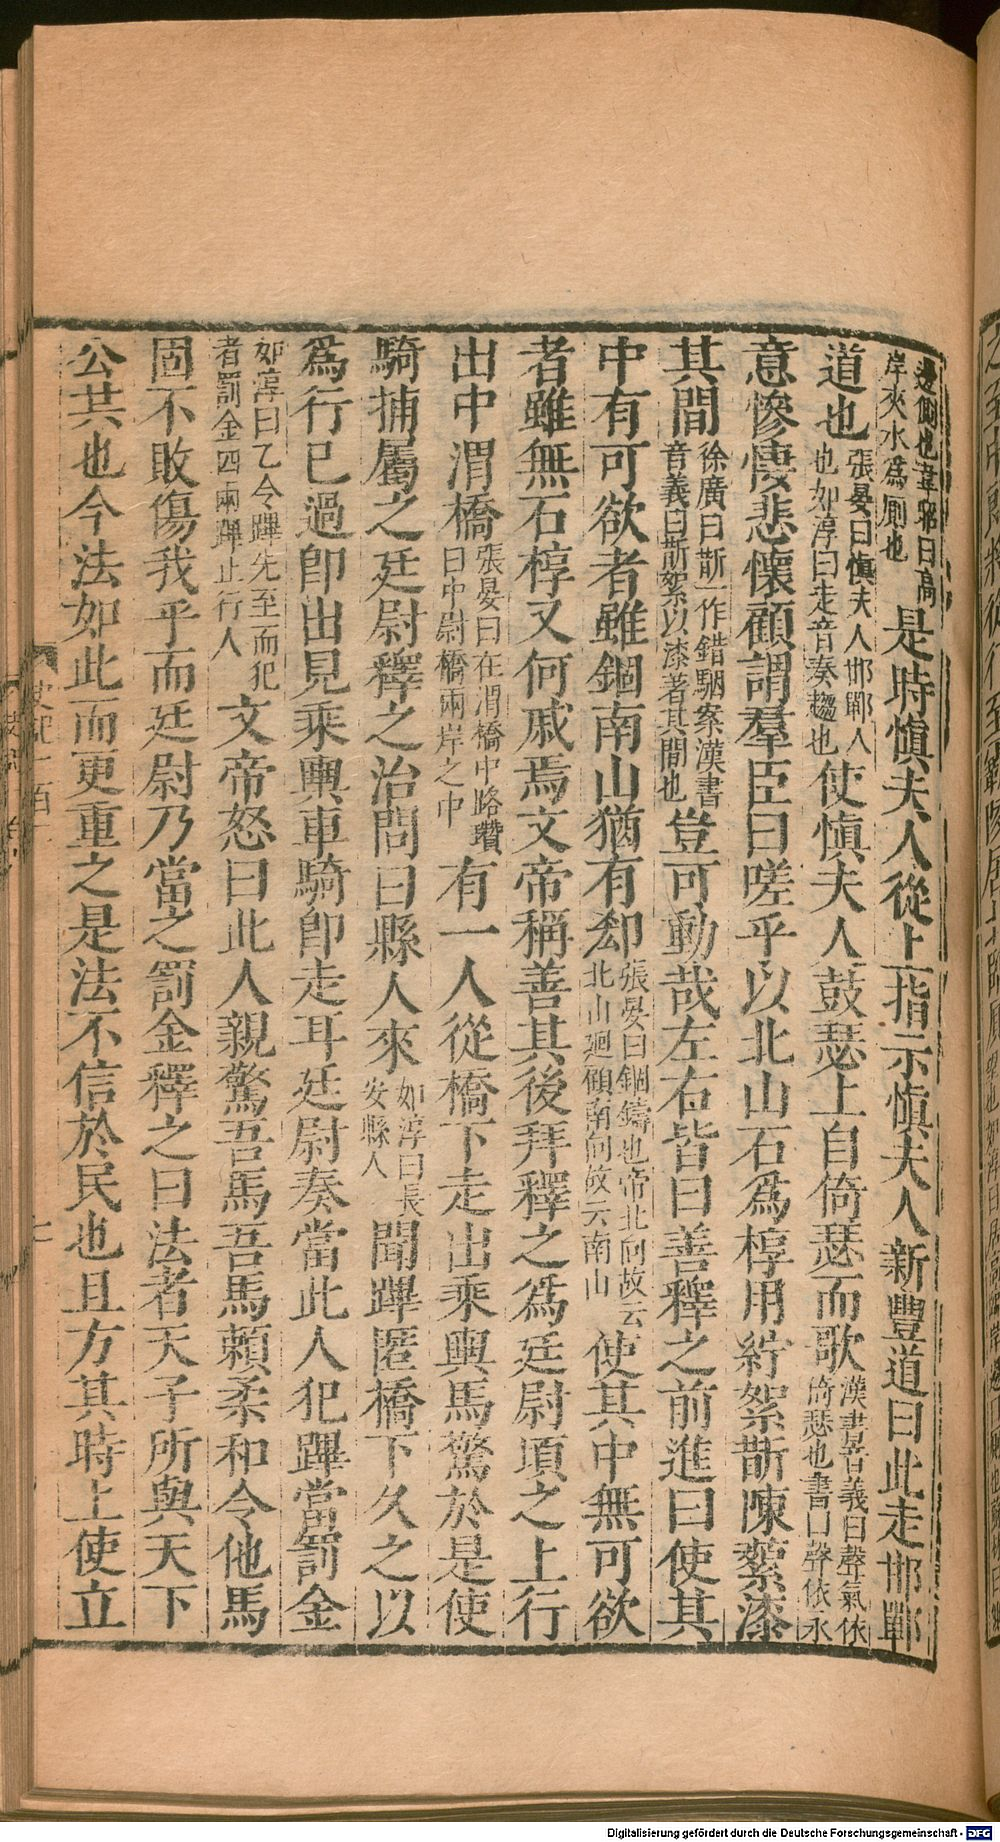 邊側也韋昭曰高
岸夾水爲厠也
是時慎夫人從上指示慎夫人新豐道曰此走邯鄲
道也
張晏曰慎夫人邯鄲人
也如淳曰走音奏趨也
使慎夫人鼓瑟上自倚瑟而歌
漢書音義曰聲氣依
倚瑟也書曰聲依永
意慘悽悲懷顧謂羣臣曰嗟乎以北山石爲椁用紵絮斮陳蘩漆
其間
徐廣曰斮一作錯駰案漢書
音義曰斮絮以漆著其間也
豈可動哉左右皆曰善釋之前進曰使其
中有可欲者雖錮南山猶有郄
張晏曰錮鑄也帝北向故云
北山廻顧南向故云南山
使其中無可欲
者雖無石椁又何戚焉文帝稱善其後拜釋之爲廷尉頃之上行
出中渭橋
張晏曰在渭橋中路瓚
曰中尉橋兩岸之中
有一人從橋下走出乘輿馬驚於是使
騎捕屬之廷尉釋之治問曰縣人來
如淳曰長
安縣人
聞蹕匿橋下久之以
爲行已過卽出見乘輿車騎卽走耳廷尉奏當此人犯蹕當罰金
如淳曰乙令蹕先至而犯
者罰金四兩蹕止行人
文帝怒曰此人親驚吾馬吾馬賴柔和令他馬
固不敗傷我乎而廷尉乃當之罰金釋之曰法者天子所與天下
公共也今法如此而更重之是法不信於民也且方其時上使立
史記一百二
Digitalisierung gefördert durch die Deutsche Forschungsgemeinschaft - DFG